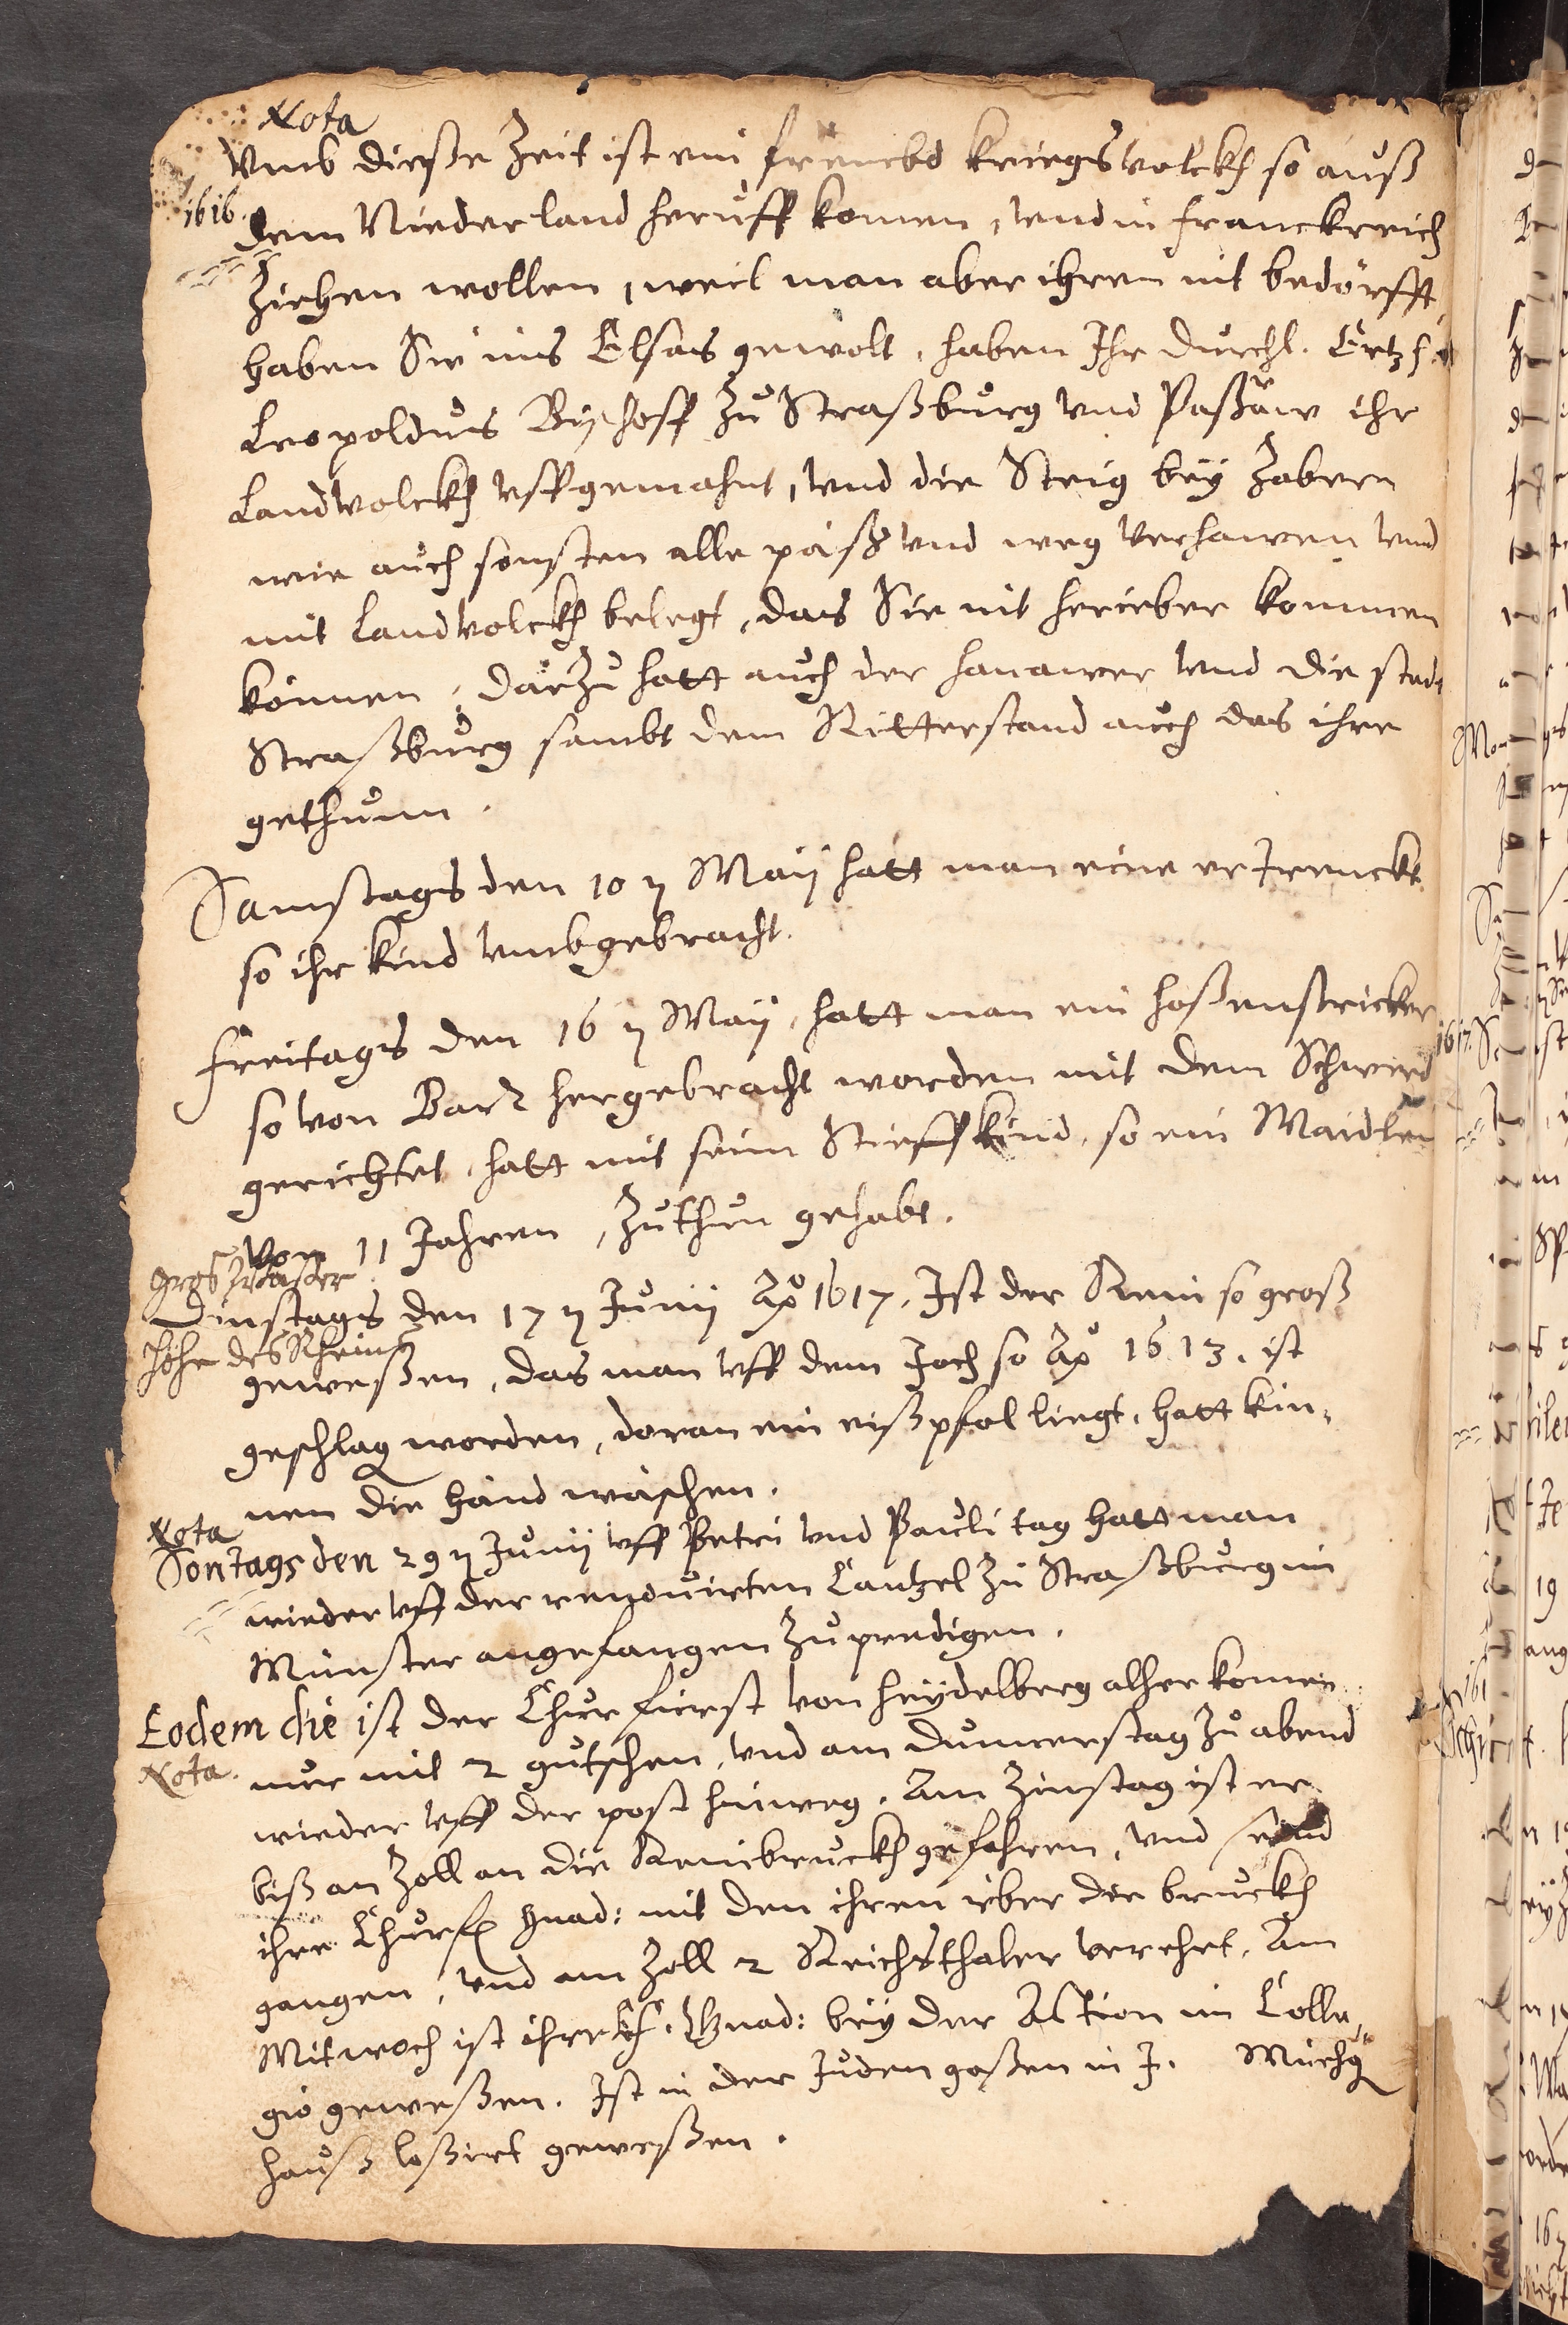 Nota
Vmb dieße Zeit ist ein frembd kriegsvolckh so auß
1616.
dem Niederland heruff komen, vnd in franckreich
Ziehen wollen, weil man aber ihren nit bedörfft,
haben Sie ins Elsas gewolt, haben Ihr durchl. Ertzh.
Leopoldus Byschoff zu Straßburg vnd Paßaw ihr
Landvolckh vffgemahnt, vnd die Steig bey Zabern
wie auch sonsten alle päß vnd weg verhawen vnd
mit Landvolckh belegt, das Sie nit herieber kommen
können, darzu hatt auch der hanawer vnd die stadt
Straßburg sambt dem Ritterstand auch das ihre
gethunn.
Samstags den 10 n Maij hatt man eine ertrenckt
so ihr kind vmbgebracht.
freitags den 16 n Maij, hatt man ein hoßenstricker
so von Barr hergebracht worden mit dem Schwerd
gerichtet, hatt mit seim Stieffkind, so ein Maidlin
von 11 Jahren, zuthun gehabt.
gros Waßer
Dinstags den 17 n Junij Ao 1617. Ist der Rein so groß
höhe des Rheins
geweßen, das man vff dem Joch so Ao 1613. ist
geschlagen worden, doran ein eißpfal liegt, hatt kin-
nen die händ wäschen.
Nota
Sontags den 29 n Junij vff Petri vnd Pauli tag hatt man
wieder vff der renovirten Cantzel zu Straßburg im
Münster angefangen zu predigen.
Eodem die ist der Churfürst von heydelberg alher komen
Nota.
nur mit 2 gutschen, vnd am dunnerstag zu abend
wieder vff der post hinweg. Am Zinstag ist er
biß an Zoll an die Reinbruckh gefahren, vnd seind
ihre Churf. Gnad: mit den ihren iber die bruckh
gangen, vnd am Zoll 2 Reichsthaler verehrt. Am
Mitwoch ist ihre Chf. Gnad: bey der Action im Colle-
gio geweßen. Ist in der Juden gaßen in J.
hauß loßirt geweßen.